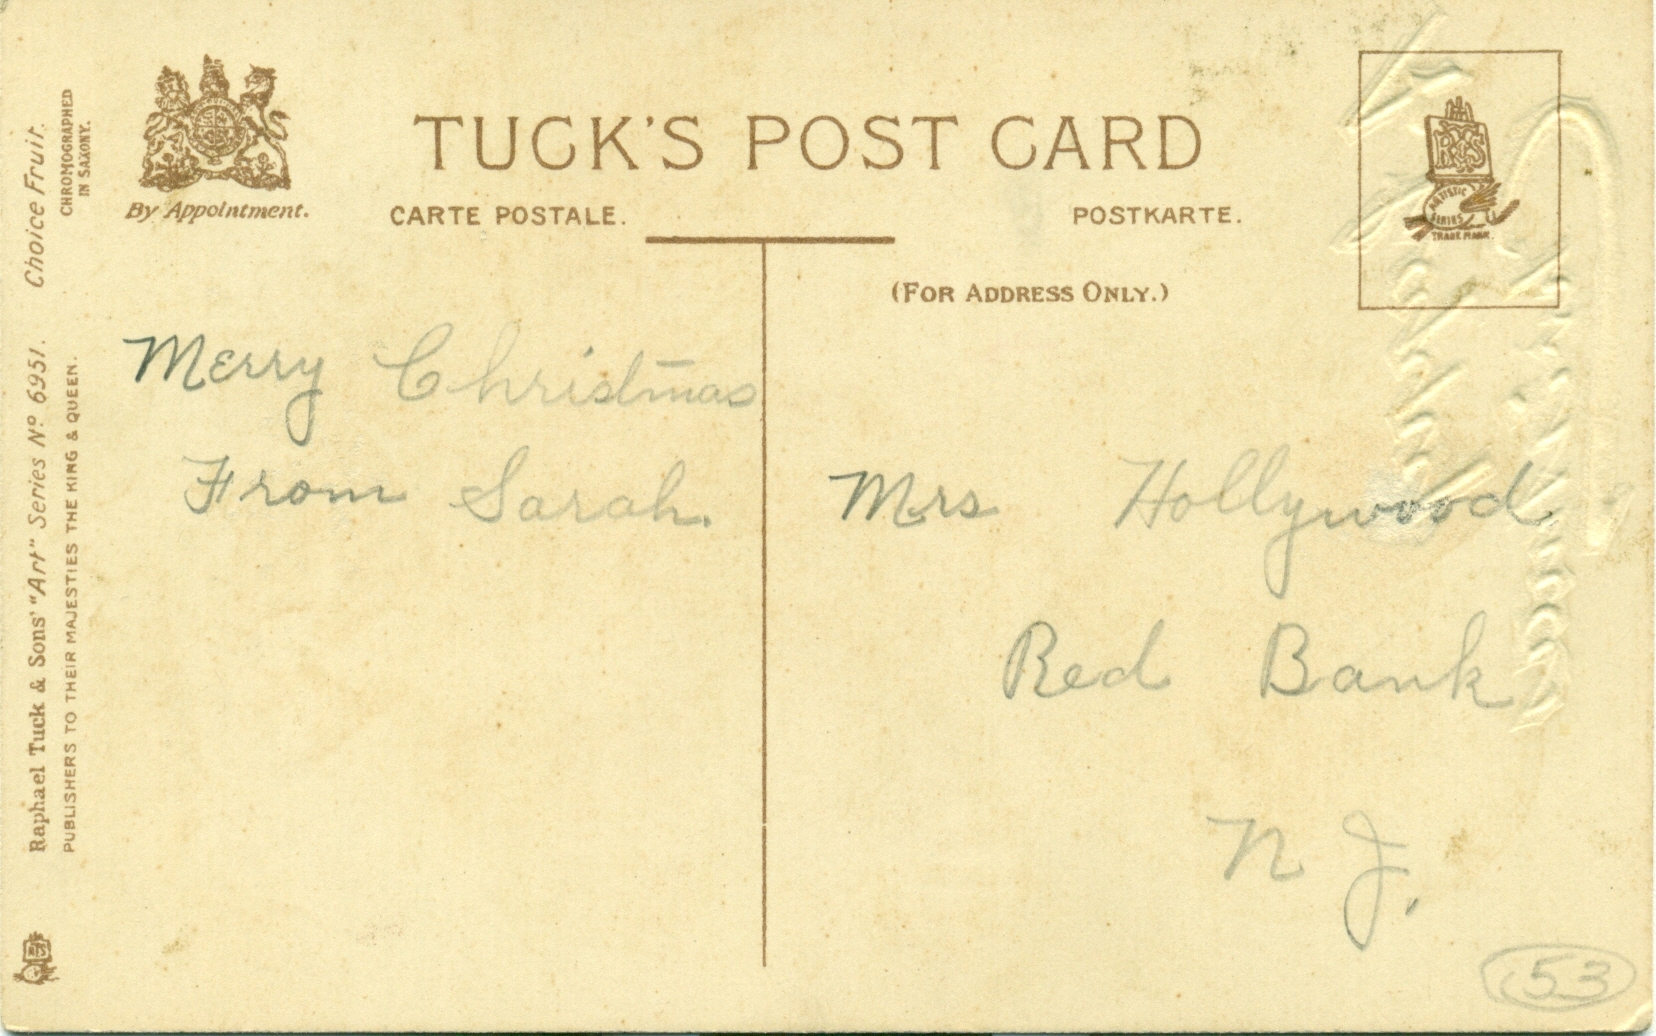 TUCK'S POST CARD
By Appointment.
CARTE POSTALE.
POSTKARTE.
(FOR ADDRESS ONLY.)
R T & S
ARTISTIC
SERIES
TRADE MARK.
Choice Fruit.
CHROMOGRAPHED
IN SAXONY.
Raphael Tuck & Sons' "Art" Series Nº 6951.
PUBLISHERS TO THEIR MAJESTIES THE KING & QUEEN.
Merry Christmas
From Sarah.
Mrs Hollywood
Red Bank
N J.
53